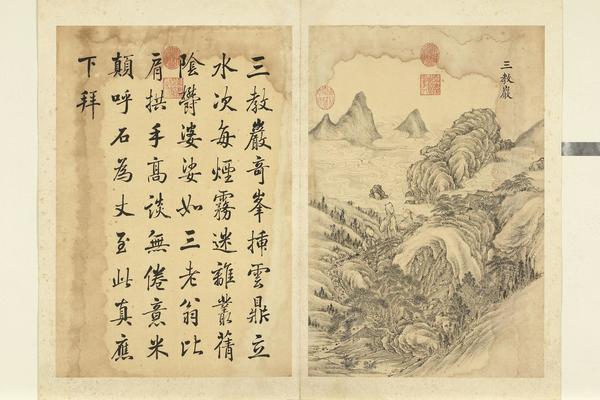 三教巖
三教巖竒峯揷雲鼎立
水次每煙霧迷離叢蒨
陰欝婆娑如三老翁比
肩拱手髙談無倦意米
顛呼石為丈至此真應
下拜